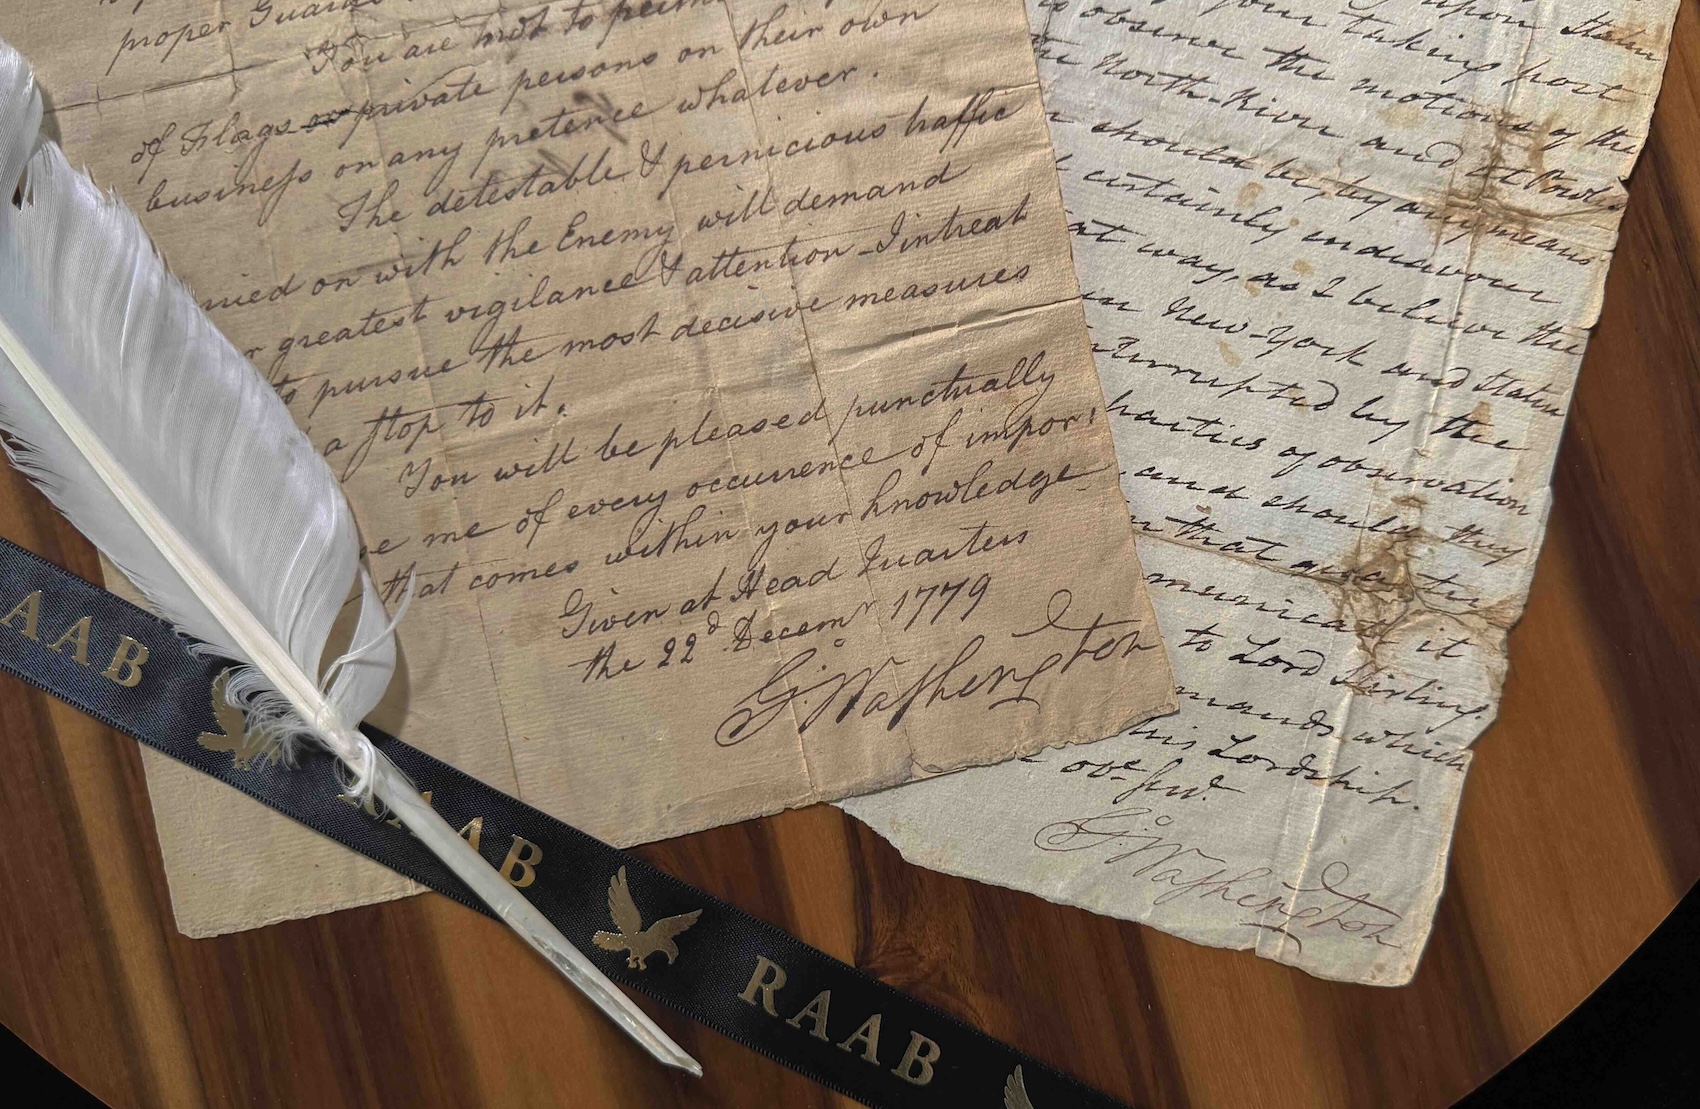 proper Guards
You are not to permit
of Flags or private persons on their own
business on any pretence whatever.
The detestable & pernicious traffic
on with the Enemy will demand
greatest vigilance & attention – I intreat
to pursue the most decisive measures
a stop to it.
You will be pleased punctually
me of every occurrence of
that comes within your knowledge
Given at Head Quarters
the 22d Decemr 1779
Go: Washington
upon Staten
your taking post
observe the motions of the
the North-River and at Powles
should be, by any means
certainly endeavour
at way, as I believe the
New-York and Staten
interrupted by the
parties of observation
and should they
that quarter
municate it
to Lord Stirling.
which
his Lordship.
obe. Servt.
Go: Washington
AAB
RAAB
RAAB